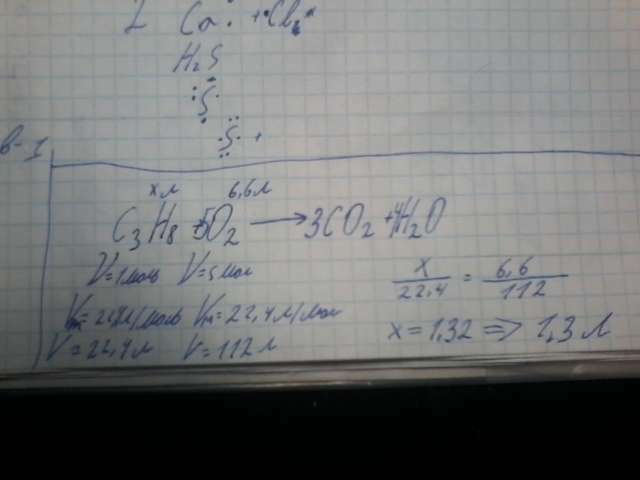 2 Ca + Cl₂
H₂S
S
S +
В-I
x л 6,6 л
C₃H₈ + 5O₂ → 3CO₂ + 4H₂O
V = 1 моль V = 5 мол
Vm = 22,4 л/моль Vm = 22,4 л/мол
V = 22,4 л V = 112 л
x/22,4 = 6,6/112
x = 1,32 ⇒ 1,3 л